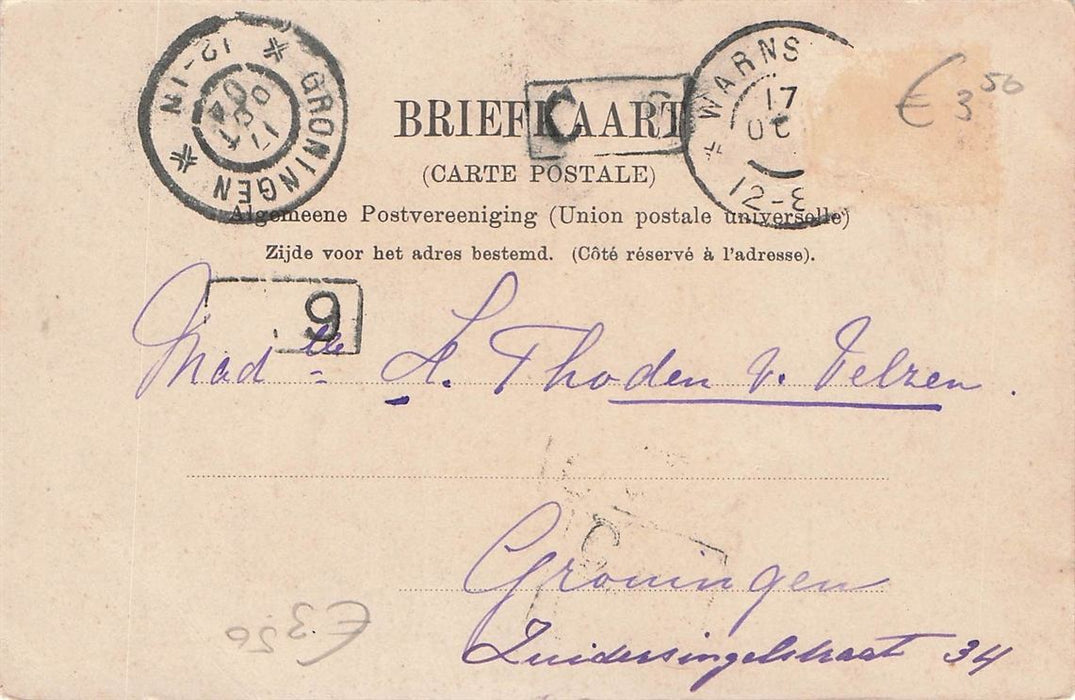 GRONINGEN
12-1N
17 OCT 04
WARNS
17
OC
12-
€ 3 50
C
BRIEFKAART
(CARTE POSTALE)
Algemeene Postvereeniging (Union postale universelle)
Zijde voor het adres bestemd. (Côté réservé à l'adresse).
9
Mad lle H. Thoden v. Velzen.
C
Groningen
Zuidersingelstraat 34
€ 3 50